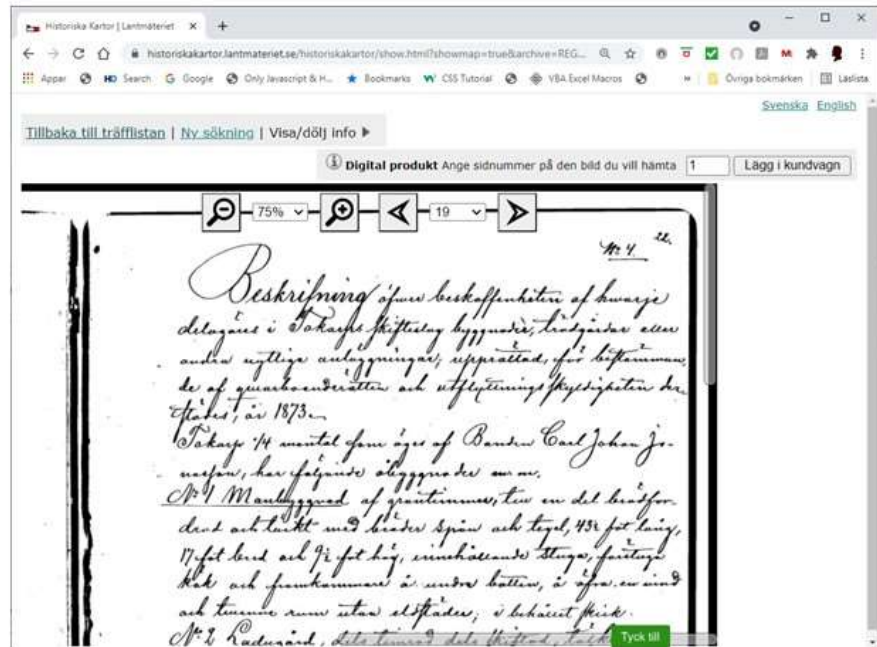 Historiska Kartor | Lantmäteriet
historiskakartor.lantmateriet.se/historiskakartor/show.html?showmap=true&archive=REG...
Appar HD Search Google Only Javascript & H... Bookmarks CSS Tutorial VBA Excel Macros Övriga bokmärken Läslista
Svenska English
Tillbaka till träfflistan | Ny sökning | Visa/dölj info
Digital produkt Ange sidnummer på den bild du vill hämta 1 Lägg i kundvagn
75% 19
No 4 22.
Beskrifning öfwer beskaffenheten af hwarje
delägares i Tokarps skifteslag byggnader, trädgårdar eller
andra nyttige anläggningar, upprättad, för bestämman,
de af qwarboenderätten och utflyttningsskyldigheten der-
städes, år 1873.
Tokarp 1/4 mantal som äges af Bonden Carl Johan Jo-
nasson, har följande åbyggnader m.m.
No 1 Manbyggnad af grantimmer, till en del brädfor-
drad och täckt med bräder spån och tegel, 43½ fot lång,
17 fot bred och 9½ fot hög, innehållande stuga, förstuga
kök och framkammare å undra botten, å öfra en wind
och tvenne rum utan eldstäder; i behållet skick.
No 2 Ladugård, dels timrad dels skiftad, täckt
Tyck till